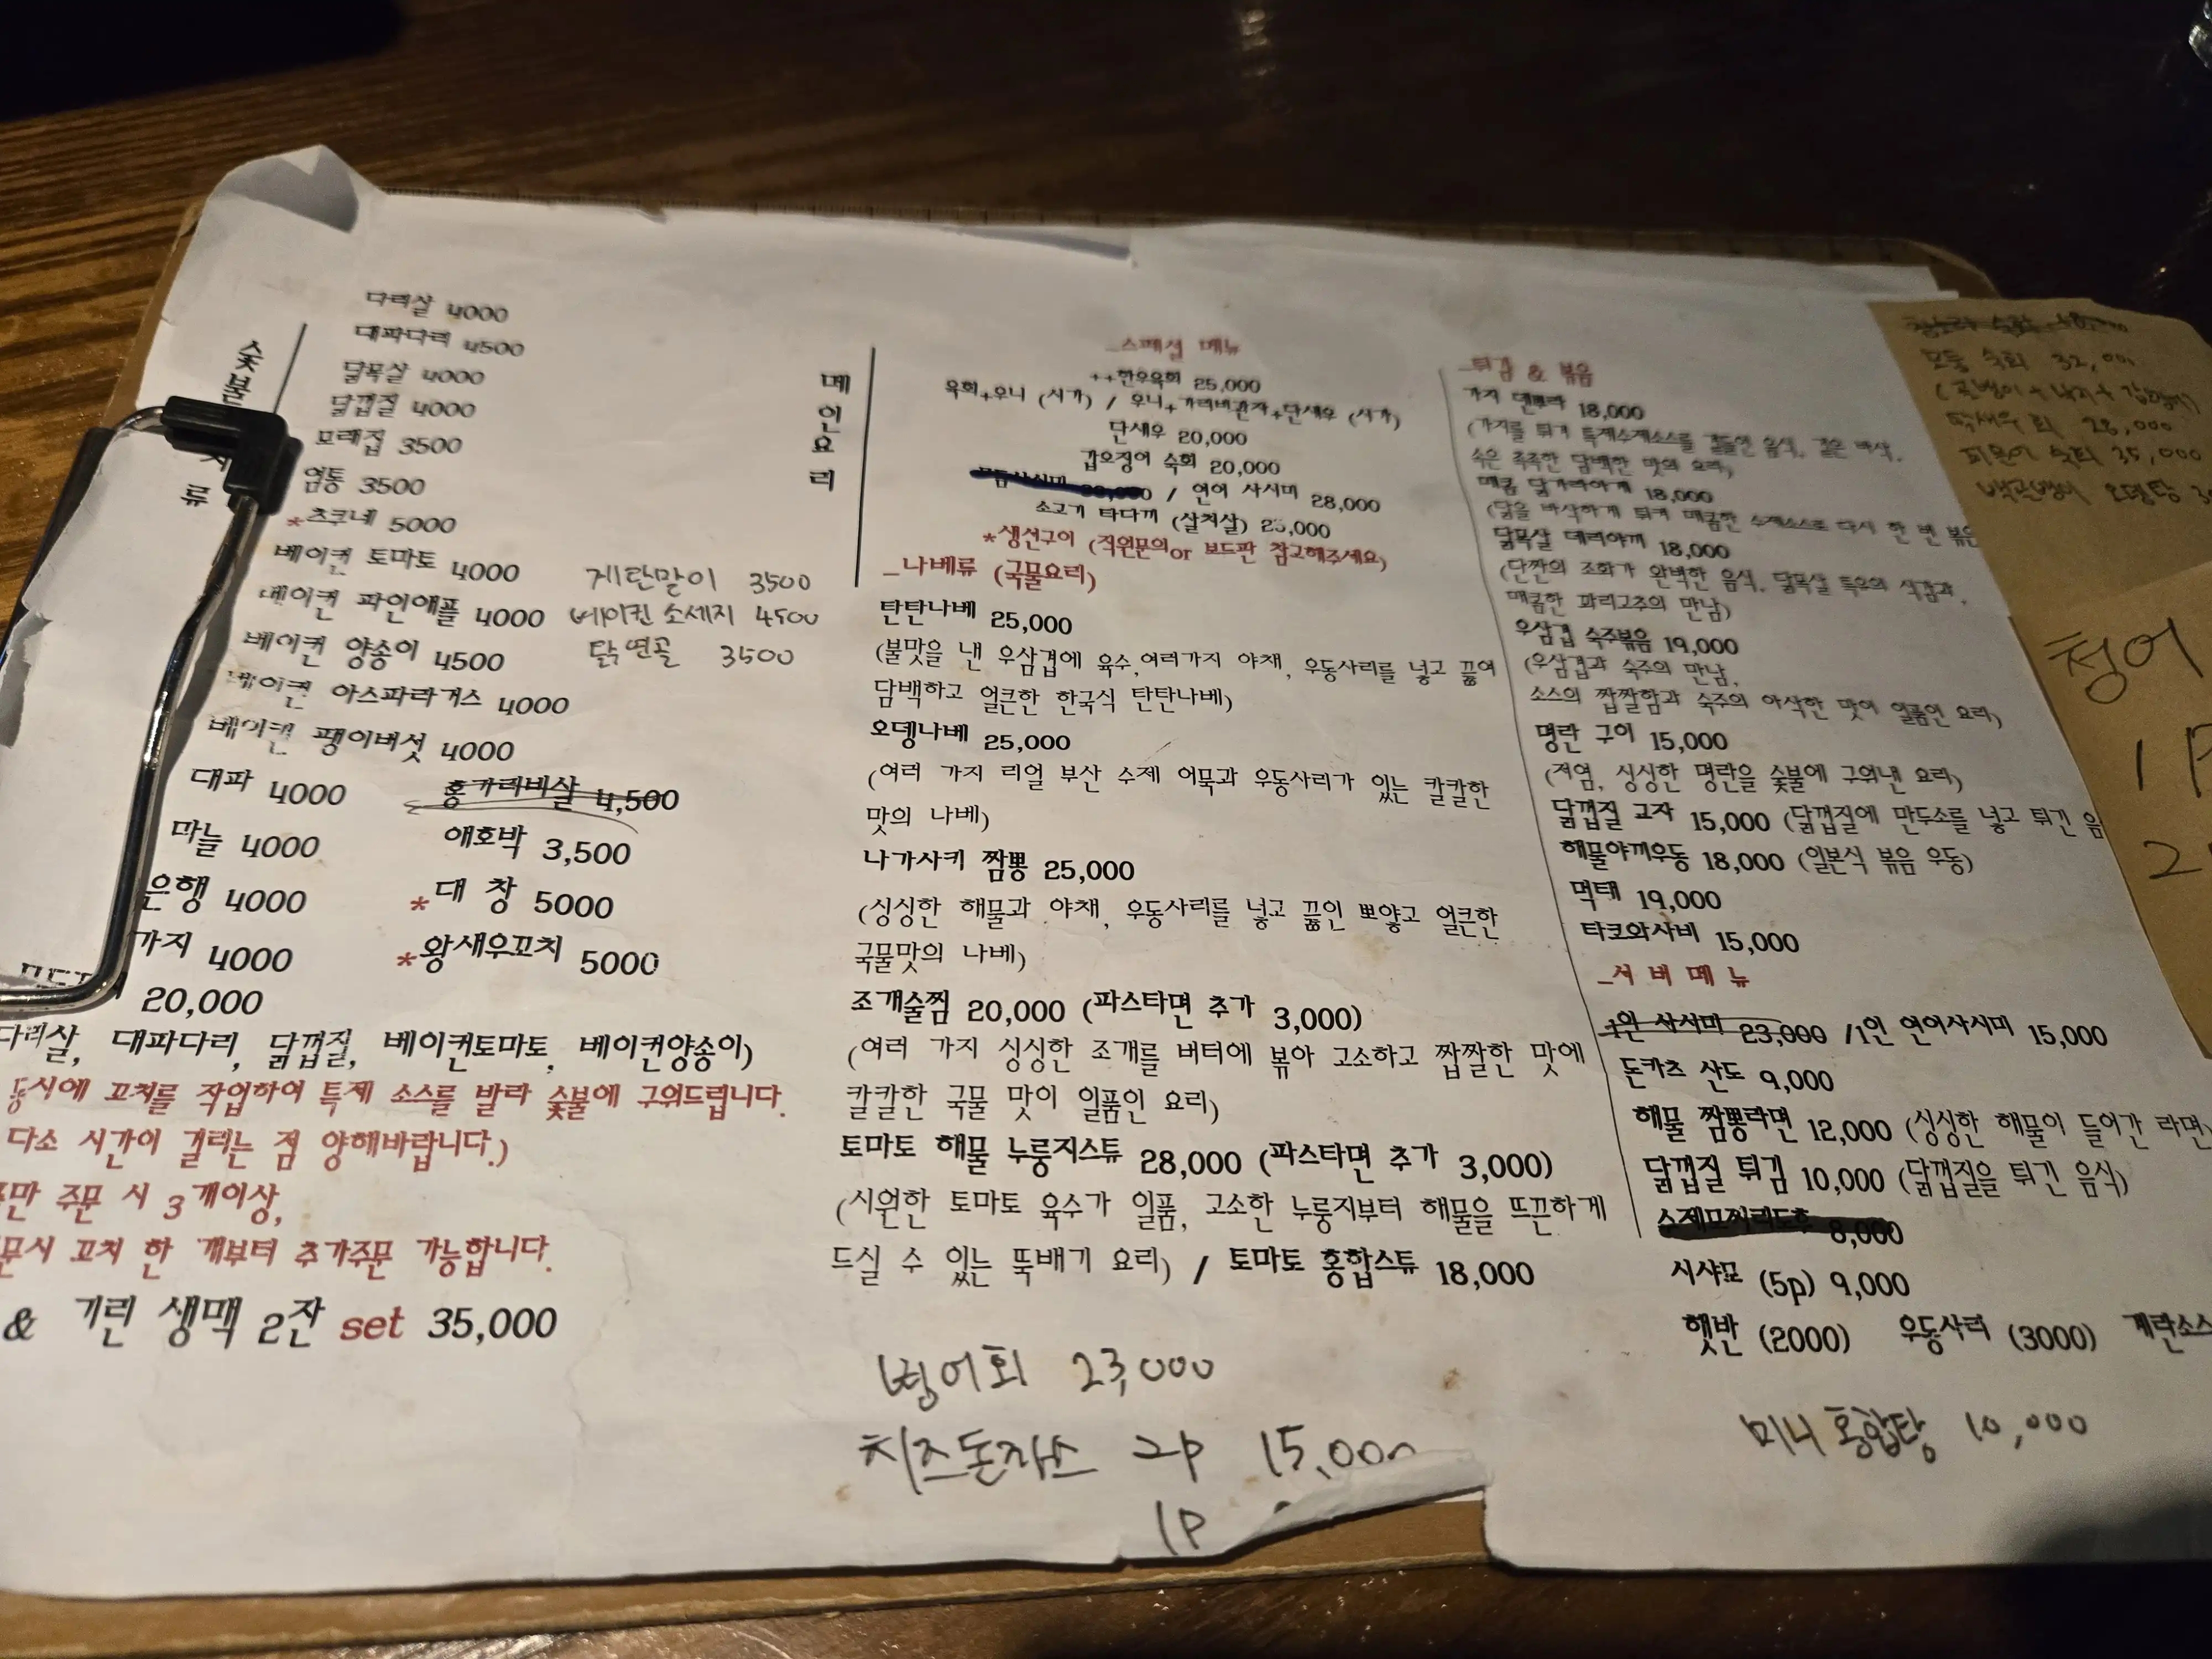 숯불
류
다리살 4000
대파다리 4500
닭목살 4000
닭껍질 4000
모래집 3500
염통 3500
*츠쿠네 5000
베이컨 토마토 4000 계란말이 3500
베이컨 파인애플 4000 베이컨 소세지 4500
베이컨 양송이 4500 닭 연골 3500
베이컨 아스파라거스 4000
베이컨 팽이버섯 4000
대파 4000 홍가리비살 4,500
마늘 4000 애호박 3,500
은행 4000 *대 창 5000
가지 4000 *왕새우꼬치 5000
20,000
다리살, 대파다리, 닭껍질, 베이컨토마토, 베이컨양송이)
동시에 꼬치를 작업하여 특제 소스를 발라 숯불에 구워드립니다.
다소 시간이 걸리는 점 양해바랍니다.)
만 주문 시 3개이상,
문시 꼬치 한 개부터 추가주문 가능합니다.
& 기린 생맥 2잔 set 35,000
메인요리
_스페셜 메뉴
++한우육회 25,000
육회+우니 (시가) / 우니+가리비관자+단새우 (시가)
단새우 20,000
갑오징어 숙회 20,000
/ 연어 사시미 28,000
소고기 타다끼 (살치살) 25,000
*생선구이 (직원문의or 보드판 참고해주세요)
_나베류 (국물요리)
탄탄나베 25,000
(불맛을 낸 우삼겹에 육수,여러가지 야채, 우동사리를 넣고 끓여
담백하고 얼큰한 한국식 탄탄나베)
오뎅나베 25,000
(여러 가지 리얼 부산 수제 어묵과 우동사리가 있는 칼칼한
맛의 나베)
나가사키 짬뽕 25,000
(싱싱한 해물과 야채, 우동사리를 넣고 끓인 뽀얗고 얼큰한
국물맛의 나베)
조개술찜 20,000 (파스타면 추가 3,000)
(여러 가지 싱싱한 조개를 버터에 볶아 고소하고 짭짤한 맛에
칼칼한 국물 맛이 일품인 요리)
토마토 해물 누룽지스튜 28,000 (파스타면 추가 3,000)
(시원한 토마토 육수가 일품, 고소한 누룽지부터 해물을 뜨끈하게
드실 수 있는 뚝배기 요리) / 토마토 홍합스튜 18,000
병어회 23,000
치즈돈까스 2p 15,000
1P
_튀김 & 볶음
가지 덴뿌라 18,000
(가지를 튀겨 특제수제소스를 곁들인 음식, 겉은 바삭,
속은 촉촉한 담백한 맛의 요리)
매콤 닭가라아게 18,000
(닭을 바삭하게 튀겨 매콤한 수제소스로 다시 한 번 볶은
닭목살 데리야끼 18,000
(단짠의 조화가 완벽한 음식, 닭목살 특유의 식감과,
매콤한 꽈리고추의 만남)
우삼겹 숙주볶음 19,000
(우삼겹과 숙주의 만남,
소스의 짭짤함과 숙주의 아삭한 맛이 일품인 요리)
명란 구이 15,000
(저염, 싱싱한 명란을 숯불에 구워낸 요리)
닭껍질 교자 15,000 (닭껍질에 만두소를 넣고 튀긴 음
해물야끼우동 18,000 (일본식 볶음 우동)
먹태 19,000
타코와사비 15,000
_서 버 메 뉴
1인 사시미 23,000 /1인 연어사시미 15,000
돈카츠 산도 9,000
해물 짬뽕라면 12,000 (싱싱한 해물이 들어간 라면)
닭껍질 튀김 10,000 (닭껍질을 튀긴 음식)
8,000
시샤모 (5p) 9,000
햇반 (2000) 우동사리 (3000) 계란소스
미니 홍합탕 10,000
모듬 숙회 32,000
딱새우 회 28,000
피문어 숙회 35,000
백골뱅이 오뎅탕
청어
1P
2